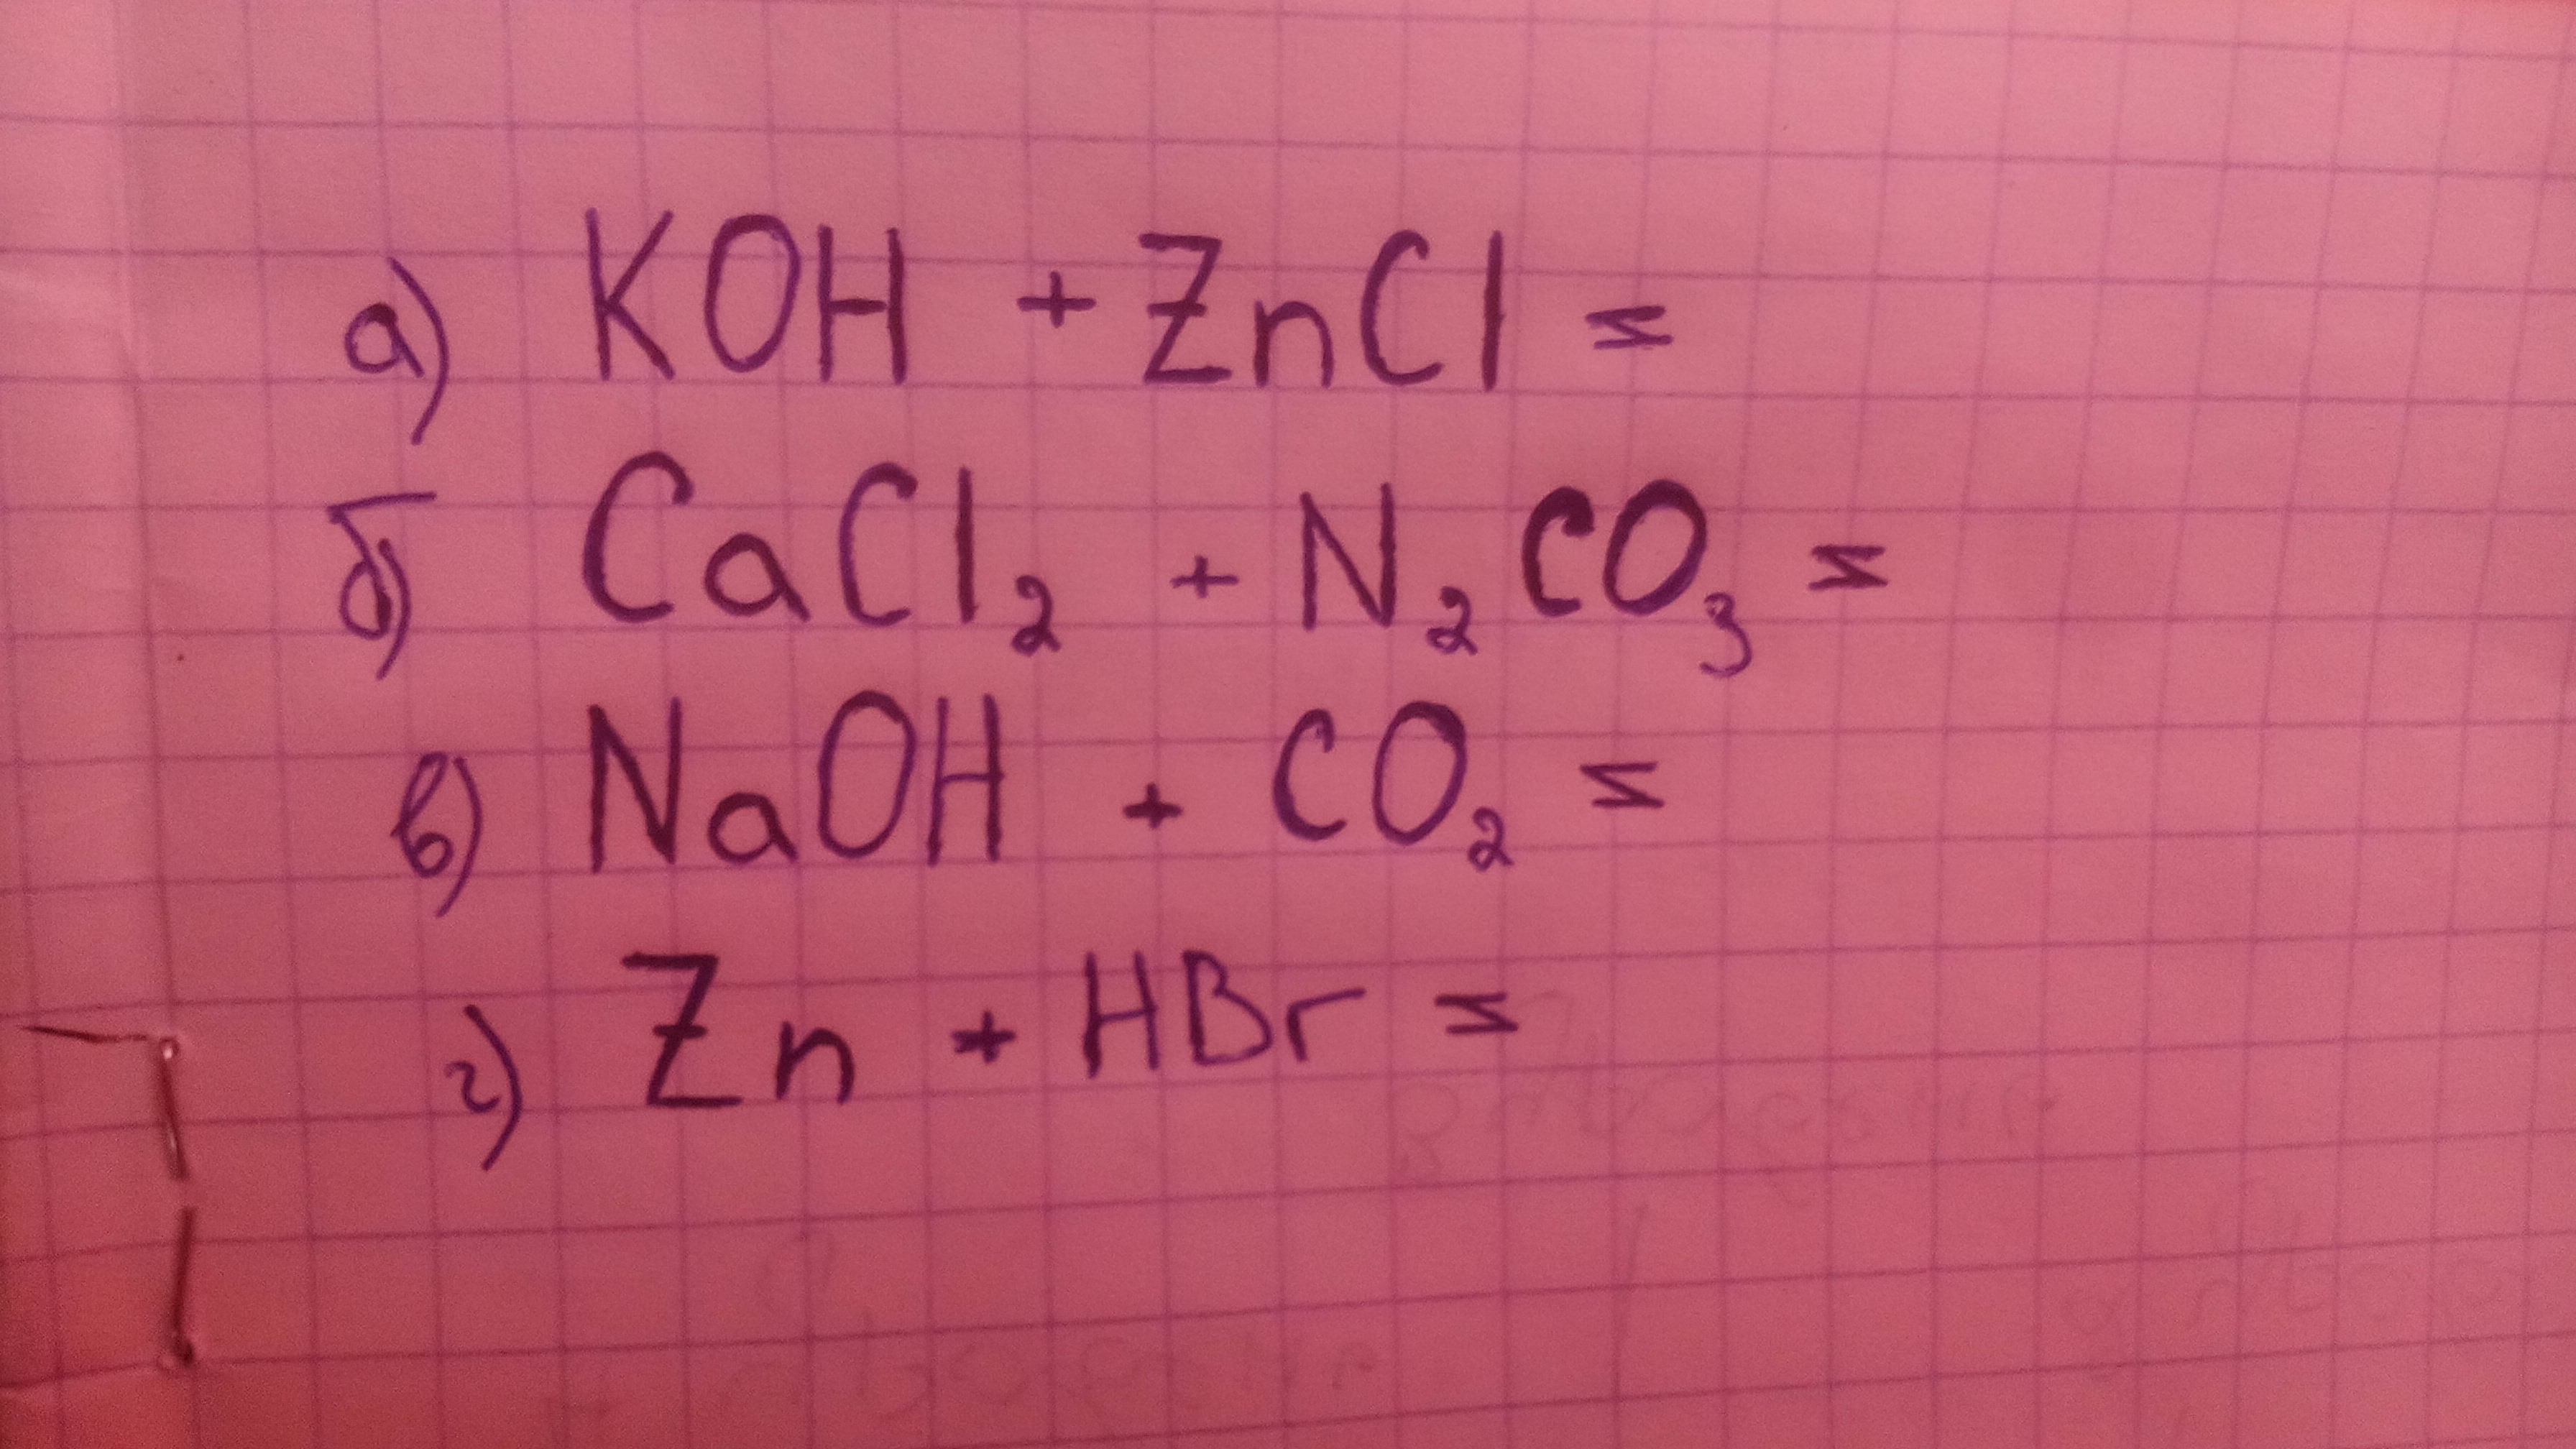 а) KOH + ZnCl =
б) CaCl₂ + N₂CO₃ =
в) NaOH + CO₂ =
г) Zn + HBr =